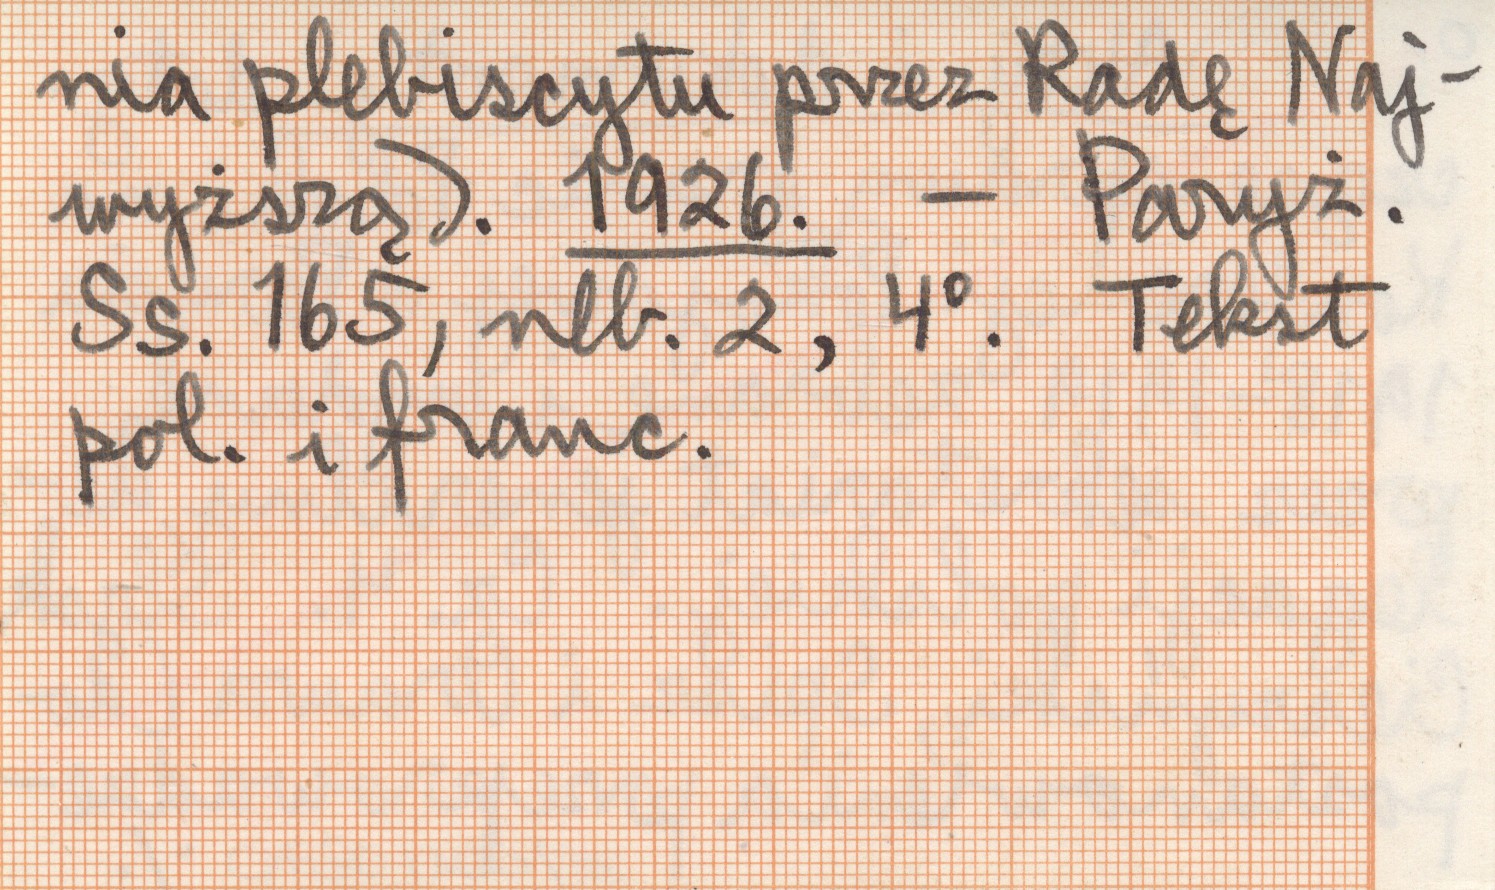 nia plebiscytu przez Radę Naj-
wyższą). 1926. – Paryż.
Ss. 165, nlb. 2, 4°. Tekst
pol. i franc.